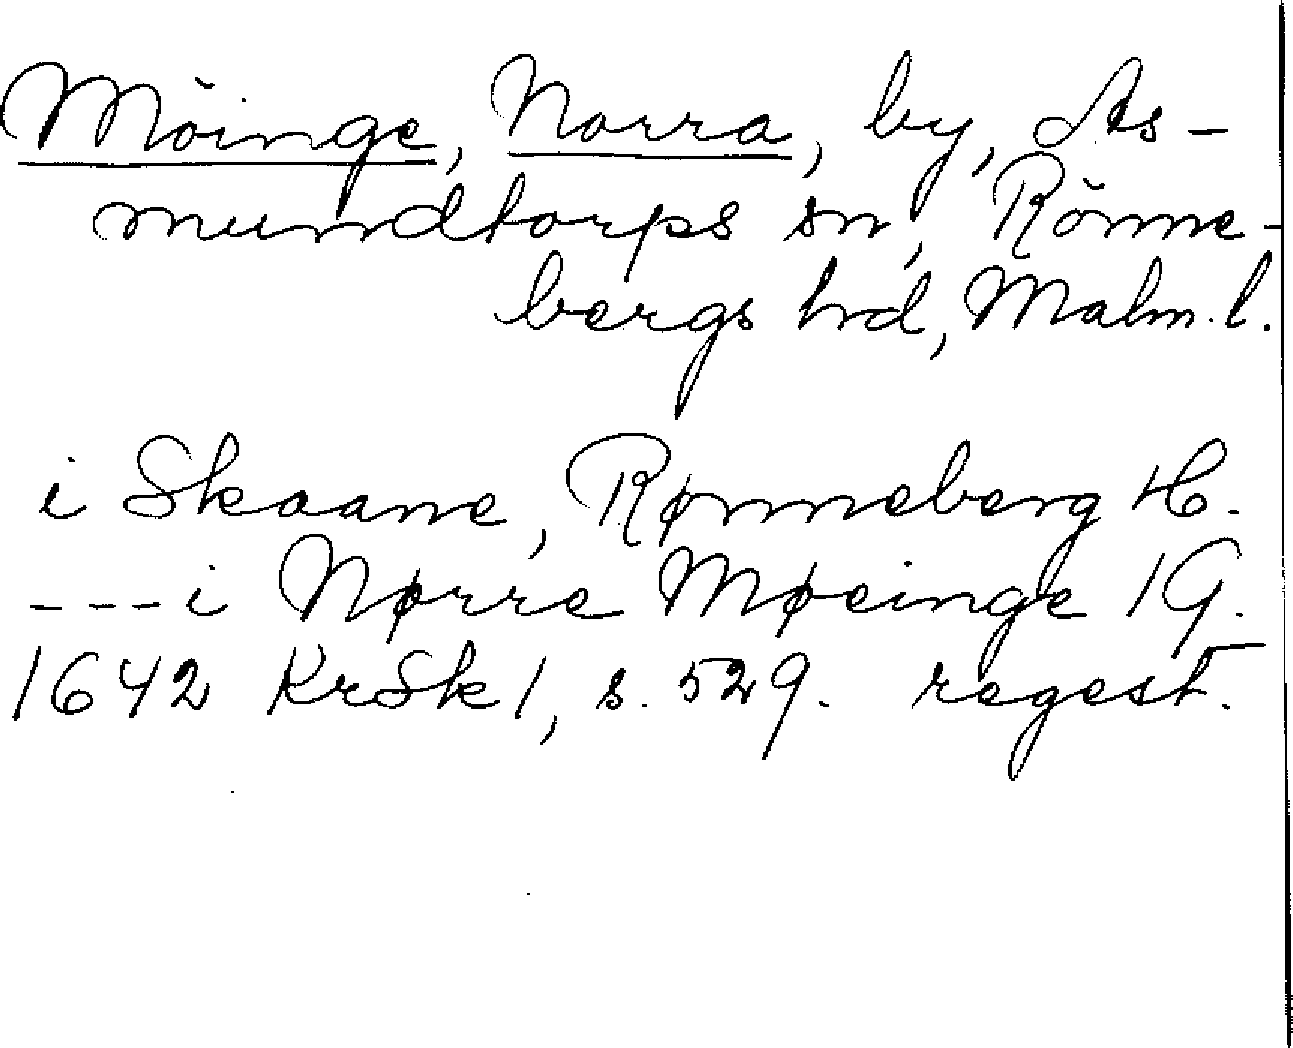 Möinge, Norra, by, As-
mundtorps sn, Rönne-
bergs hd, Malm. l.
i Skaane, Rønneberg H.
---i Nørre Møeinge 1 G.
1642 KrSk 1, s. 529. regest.